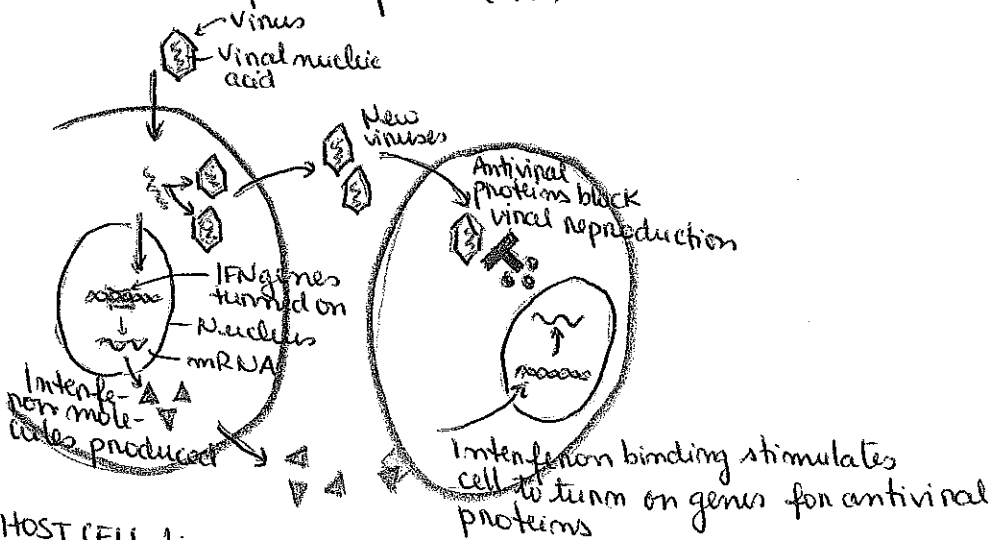 Virus
Viral nucleic
acid
New
viruses
Antiviral
proteins block
viral reproduction
IFN genes
turned on
Nucleus
mRNA
Interfe-
ron mole-
cules produced
Interferon binding stimulates
cell to turn on genes for antiviral
proteins
HOST CELL